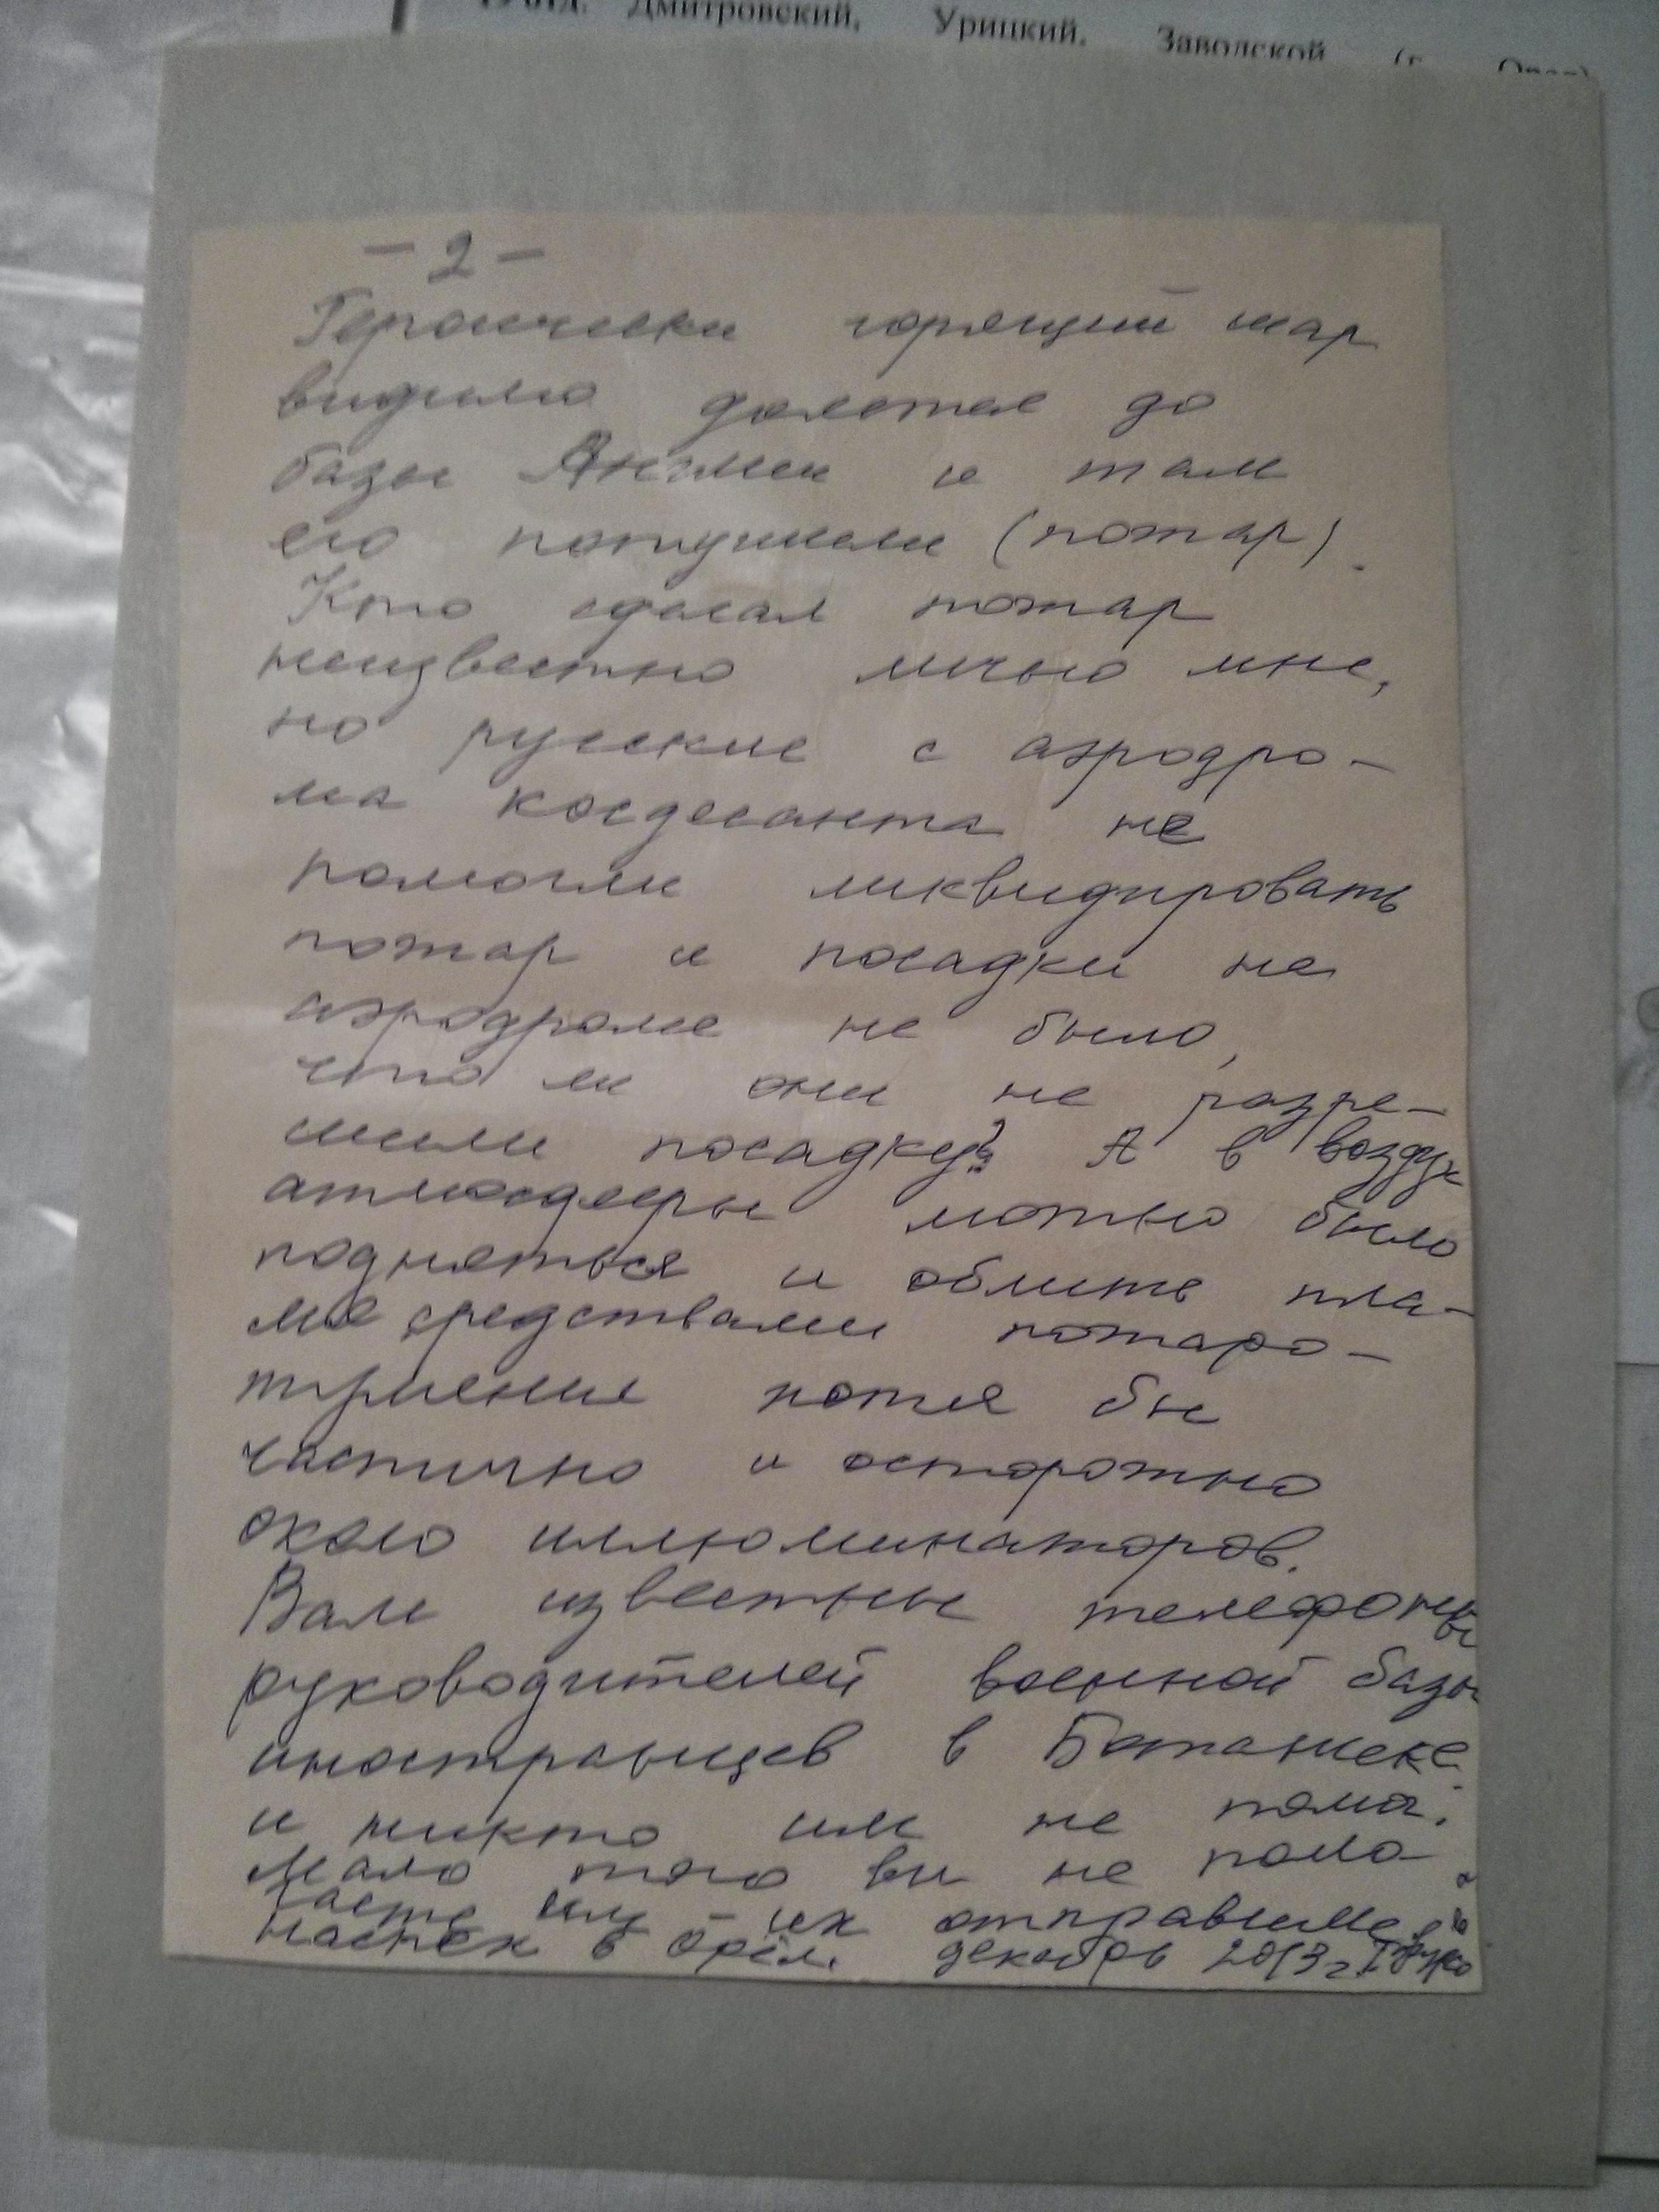 Дмитровский, Урицкий, Заводской (г. Орел)
- 2 -
Героически горящий шар
видимо долетел до
базы Англии и там
его потушили (пожар).
Кто сделал пожар
неизвестно лично мне,
но русские с аэродро-
ма косдесанта не
помогли ликвидировать
пожар и посадки на
аэродроме не было,
что ли они не разре-
шили посадку? А в воздух
атмосферы можно было
подняться и облить пла-
мя средствами пожаро-
тушения хотя бы
частично и осторожно
около иллюминаторов.
Вам известны телефоны
руководителей военной базы
иностранцев в
и никто им не помог.
Мало того вы не пома-
гаете им их отправить
в Орёл. декабрь 2013 г.